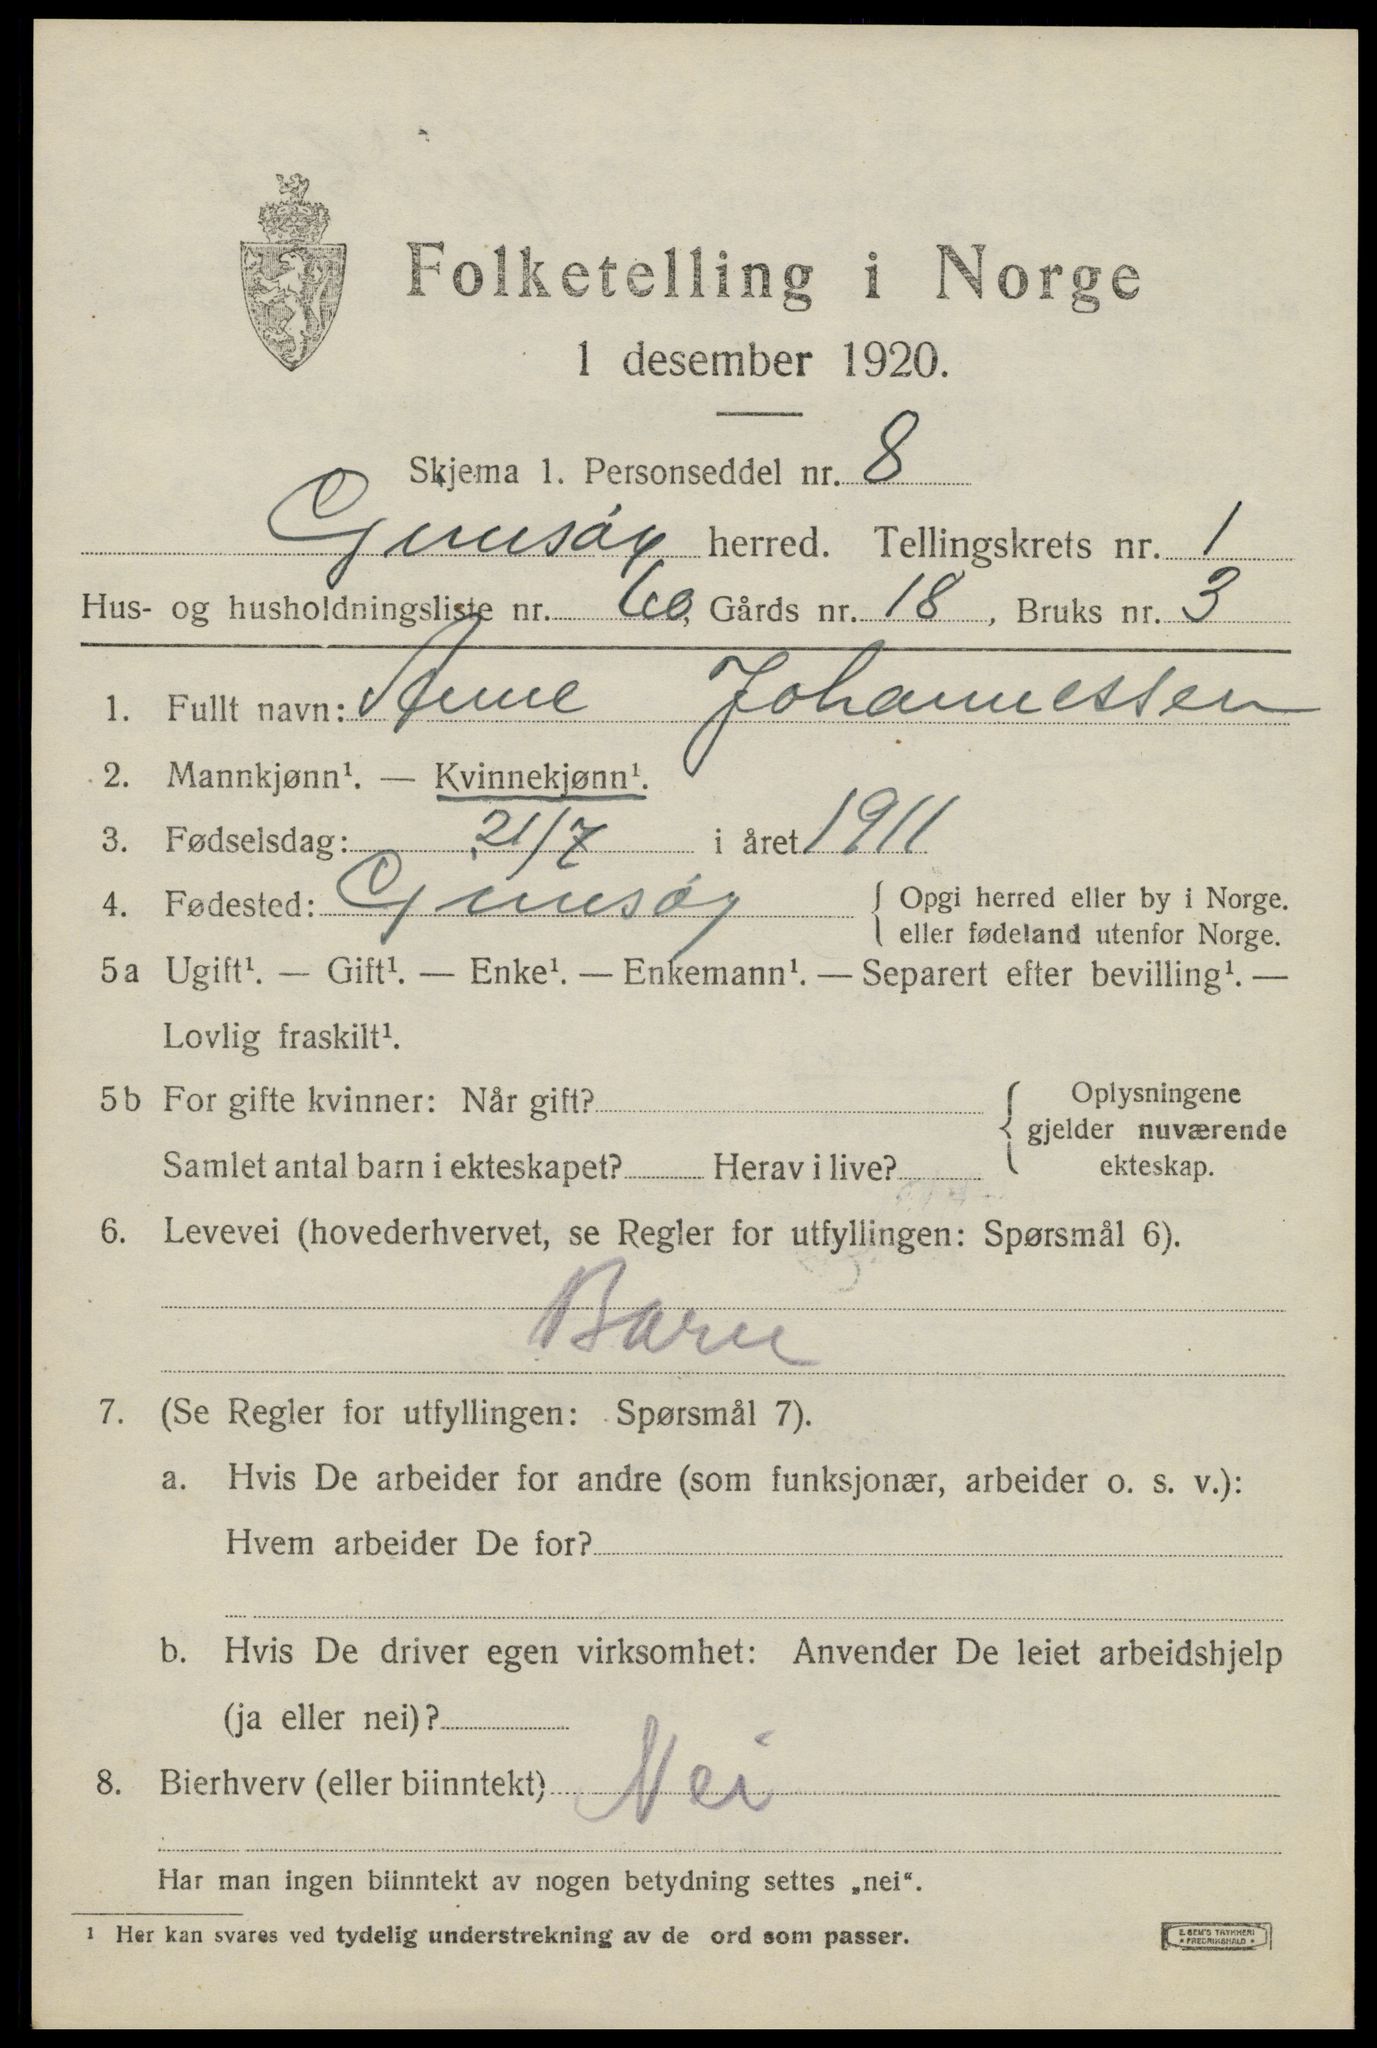 Folketelling i Norge
1 desember 1920.
Skjema 1. Personseddel nr. 8
Gimsøy herred. Tellingskrets nr. 1
Hus- og husholdningsliste nr. 60, Gårds nr. 18, Bruks nr. 3
1. Fullt navn: Anne Johannessen
2. Mannkjønn¹. — Kvinnekjønn¹.
3. Fødselsdag: 21/7 i året 1911
4. Fødested: Gimsøy { Opgi herred eller by i Norge.
eller fødeland utenfor Norge.
5a Ugift¹. — Gift¹. — Enke¹. — Enkemann¹. — Separert efter bevilling¹. —
Lovlig fraskilt¹.
5b For gifte kvinner: Når gift? { Oplysningene
gjelder nuværende
Samlet antal barn i ekteskapet? Herav i live? ekteskap.
6. Levevei (hovederhvervet, se Regler for utfyllingen: Spørsmål 6).
Barn
7. (Se Regler for utfyllingen: Spørsmål 7).
a. Hvis De arbeider for andre (som funksjonær, arbeider o. s. v.):
Hvem arbeider De for?
b. Hvis De driver egen virksomhet: Anvender De leiet arbeidshjelp
(ja eller nei)?
8. Bierhverv (eller biinntekt) Nei
Har man ingen biinntekt av nogen betydning settes „nei“.
¹ Her kan svares ved tydelig understrekning av de ord som passer.
E. SEM'S TRYKKERI
FREDRIKSHALD